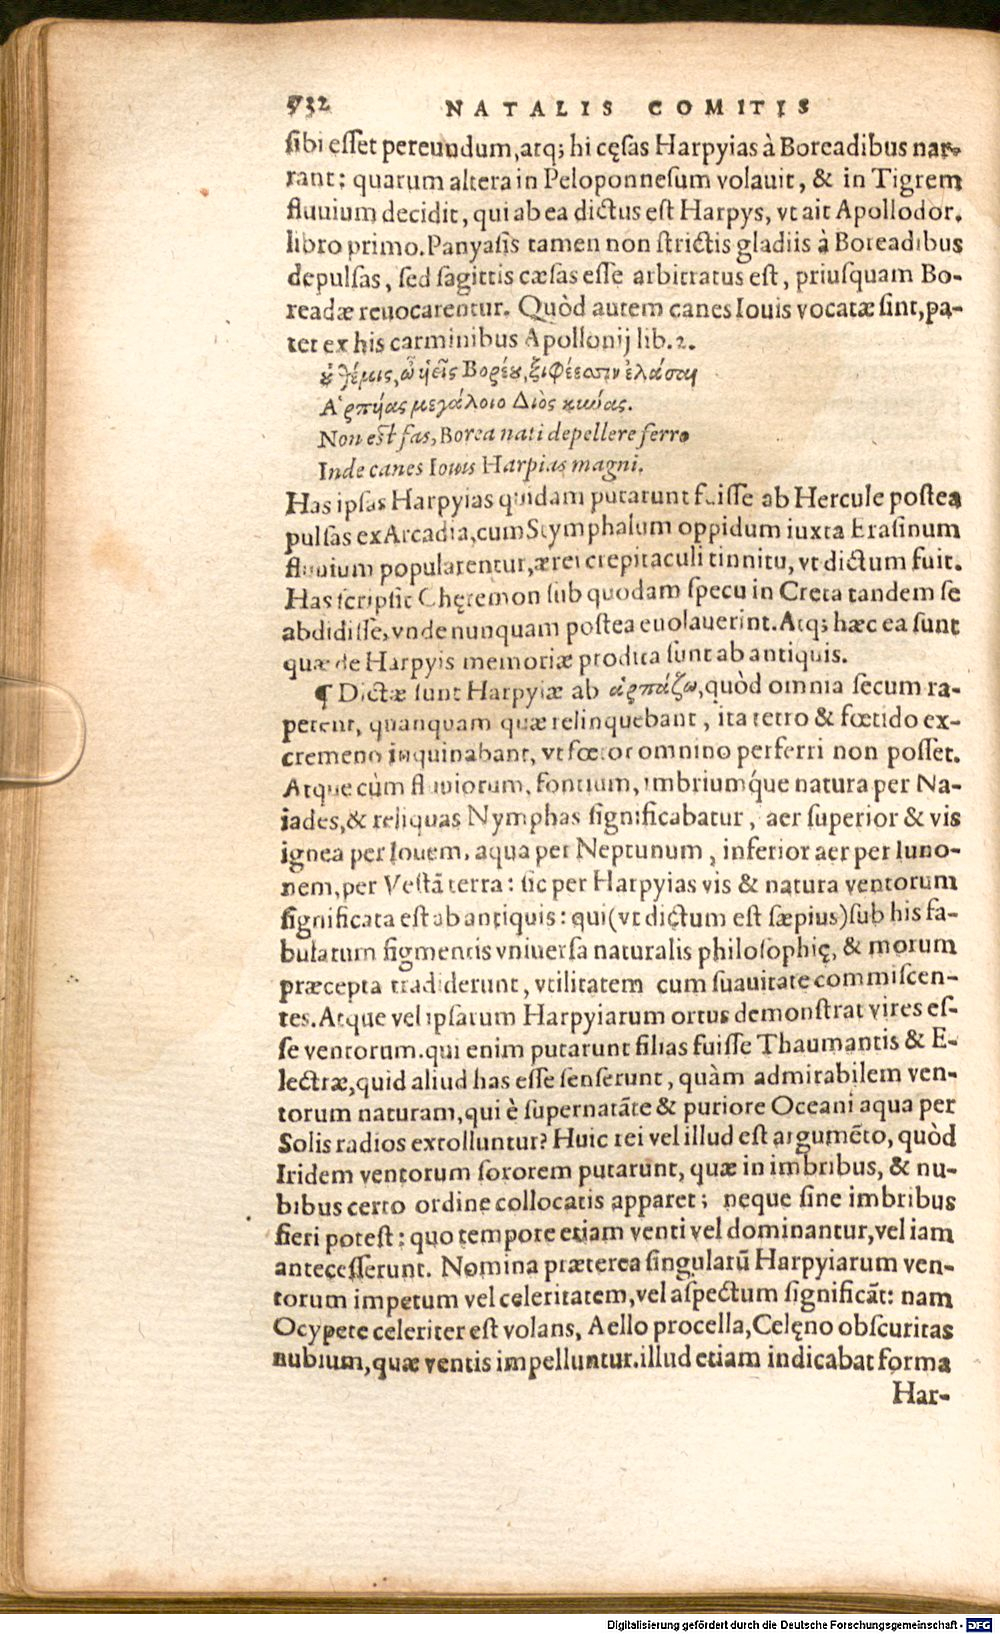 732 NATALIS COMITIS
sibi esset pereundum, atq; hi cęsas Harpyias à Boreadibus nar-
rant: quarum altera in Peloponnesum volauit, & in Tigrem
fluuium decidit, qui ab ea dictus est Harpys, vt ait Apollodor.
libro primo. Panyasis tamen non strictis gladiis à Boreadibus
depulsas, sed sagittis cæsas esse arbitratus est, priusquam Bo-
readæ reuocarentur. Quòd autem canes Iouis vocatæ sint, pa-
tet ex his carminibus Apollonij lib. 2.
οὐ θέμις, ὦ ὑεῖς Βορέου, ξιφέεσσιν ἐλάσσαι
Ἁρπύας μεγάλοιο Διὸς κύνας.
Non est fas, Borea nati depellere ferro
Inde canes Iouis Harpias magni.
Has ipsas Harpyias quidam putarunt fuisse ab Hercule postea
pulsas ex Arcadia, cum Stymphalum oppidum iuxta Erasinum
fluuium popularentur, ærei crepitaculi tinnitu, vt dictum fuit.
Has scripsit Chęremon sub quodam specu in Creta tandem se
abdidisse, vnde nunquam postea euolauerint. Atq; hæc ea sunt
quæ de Harpyis memoriæ prodita sunt ab antiquis.
¶ Dictæ sunt Harpyiæ ab ἁρπάζω, quòd omnia secum ra-
perent, quanquam quæ relinquebant, ita tetro & fœtido ex-
cremeno inquinabant, vt fœtor omnino perferri non posset.
Atque cùm fluuiorum, fontium, imbriumq́ue natura per Na-
iades, & reliquas Nymphas significabatur, aer superior & vis
ignea per Iouem, aqua per Neptunum, inferior aer per Iuno-
nem, per Vestā terra: sic per Harpyias vis & natura ventorum
significata est ab antiquis: qui (vt dictum est sæpius) sub his fa-
bularum figmentis vniuersa naturalis philosophię, & morum
præcepta tradiderunt, vtilitatem cum suauitate commiscen-
tes. Atque vel ipsarum Harpyiarum ortus demonstrat vires es-
se ventorum. qui enim putarunt filias fuisse Thaumantis & E-
lectræ, quid aliud has esse senserunt, quàm admirabilem ven-
torum naturam, qui è supernatāte & puriore Oceani aqua per
Solis radios extolluntur? Huic rei vel illud est argumēto, quòd
Iridem ventorum sororem putarunt, quæ in imbribus, & nu-
bibus certo ordine collocatis apparet; neque sine imbribus
fieri potest: quo tempore etiam venti vel dominantur, vel iam
antecesserunt. Nomina præterea singularū Harpyiarum ven-
torum impetum vel celeritatem, vel aspectum significāt: nam
Ocypete celeriter est volans, Aello procella, Celęno obscuritas
nubium, quæ ventis impelluntur. illud etiam indicabat forma
Har-
Digitalisierung gefördert durch die Deutsche Forschungsgemeinschaft - DFG